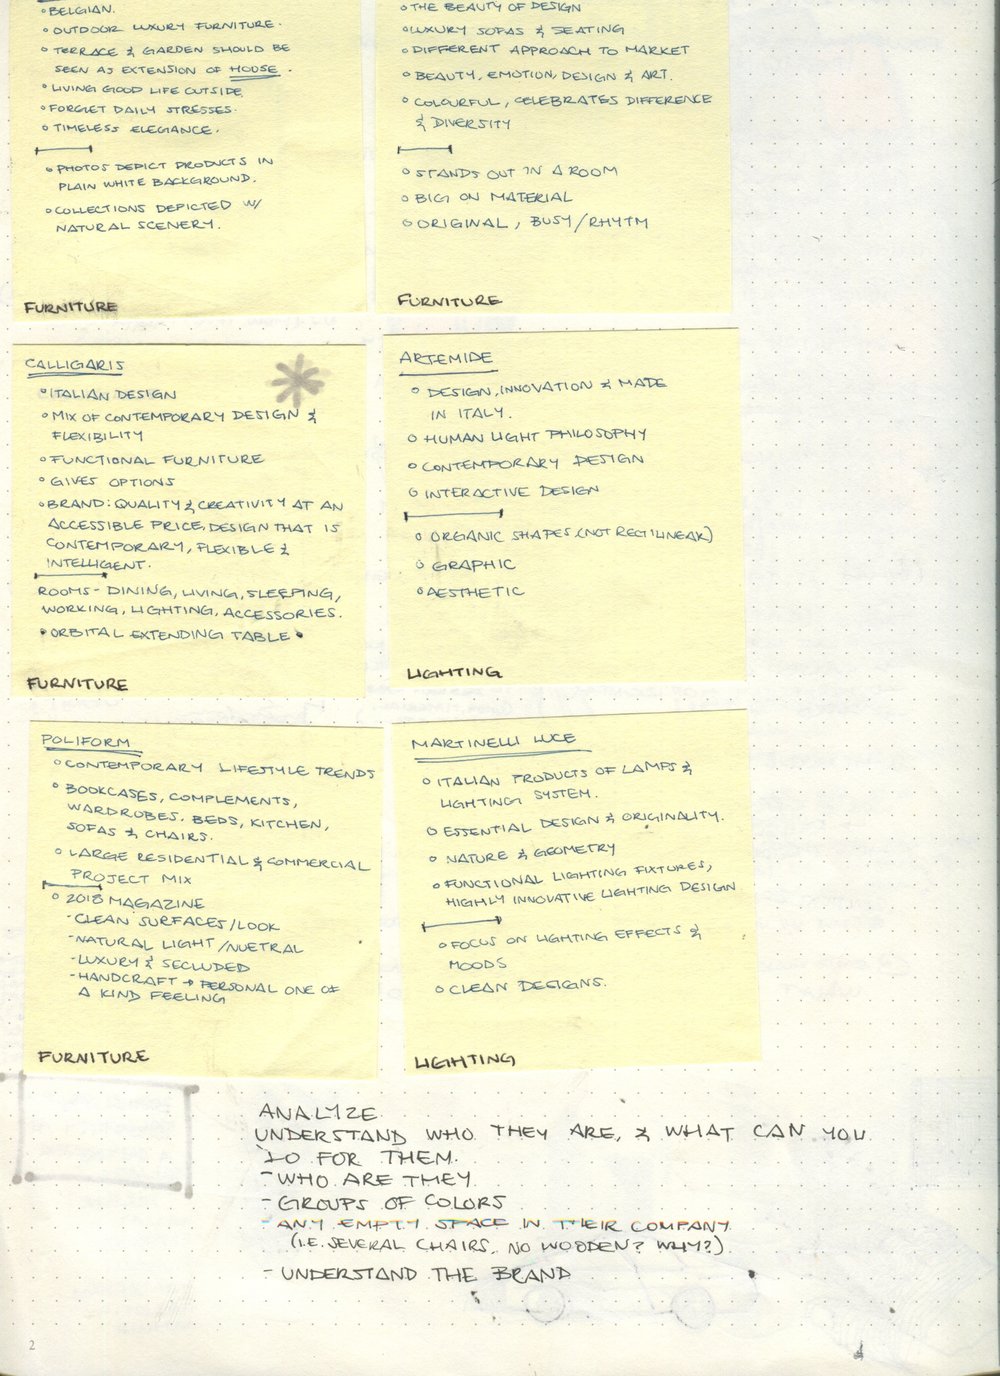 ○ BELGIAN.
○ OUTDOOR LUXURY FURNITURE.
○ TERRACE & GARDEN SHOULD BE
SEEN AS EXTENSION OF HOUSE.
○ LIVING GOOD LIFE OUTSIDE.
○ FORGET DAILY STRESSES.
○ TIMELESS ELEGANCE.
○ PHOTOS DEPICT PRODUCTS IN
PLAIN WHITE BACKGROUND.
○ COLLECTIONS DEPICTED W/
NATURAL SCENERY.
FURNITURE
○ THE BEAUTY OF DESIGN
○ LUXURY SOFAS & SEATING
○ DIFFERENT APPROACH TO MARKET
○ BEAUTY, EMOTION, DESIGN & ART.
○ COLOURFUL, CELEBRATES DIFFERENCE
& DIVERSITY
○ STANDS OUT IN A ROOM
○ BIG ON MATERIAL
○ ORIGINAL, BUSY/RHYTM
FURNITURE
CALLIGARIS
○ ITALIAN DESIGN
○ MIX OF CONTEMPORARY DESIGN &
FLEXIBILITY
○ FUNCTIONAL FURNITURE
○ GIVES OPTIONS
○ BRAND: QUALITY & CREATIVITY AT AN
ACCESSIBLE PRICE, DESIGN THAT IS
CONTEMPORARY, FLEXIBLE &
INTELLIGENT.
ROOMS - DINING, LIVING, SLEEPING,
WORKING, LIGHTING, ACCESSORIES.
• ORBITAL EXTENDING TABLE •
FURNITURE
ARTEMIDE
○ DESIGN, INNOVATION & MADE
IN ITALY.
○ HUMAN LIGHT PHILOSOPHY
○ CONTEMPORARY DESIGN
○ INTERACTIVE DESIGN
○ ORGANIC SHAPES (NOT RECTILINEAR)
○ GRAPHIC
○ AESTHETIC
LIGHTING
POLIFORM
○ CONTEMPORARY LIFESTYLE TRENDS
○ BOOKCASES, COMPLEMENTS,
WARDROBES, BEDS, KITCHEN,
SOFAS & CHAIRS.
○ LARGE RESIDENTIAL & COMMERCIAL
PROJECT MIX
○ 2018 MAGAZINE
- CLEAN SURFACES/LOOK
- NATURAL LIGHT/NUETRAL
- LUXURY & SECLUDED
- HANDCRAFT → PERSONAL ONE OF
A KIND FEELING
FURNITURE
MARTINELLI LUCE
○ ITALIAN PRODUCTS OF LAMPS &
LIGHTING SYSTEM.
○ ESSENTIAL DESIGN & ORIGINALITY.
○ NATURE & GEOMETRY
○ FUNCTIONAL LIGHTING FIXTURES,
HIGHLY INNOVATIVE LIGHTING DESIGN
○ FOCUS ON LIGHTING EFFECTS &
MOODS
○ CLEAN DESIGNS.
LIGHTING
ANALYZE
UNDERSTAND WHO THEY ARE, & WHAT CAN YOU
DO FOR THEM.
- WHO ARE THEY
- GROUPS OF COLORS
- ANY EMPTY SPACE IN THEIR COMPANY
(I.E. SEVERAL CHAIRS, NO WOODEN? WHY?)
- UNDERSTAND THE BRAND
2